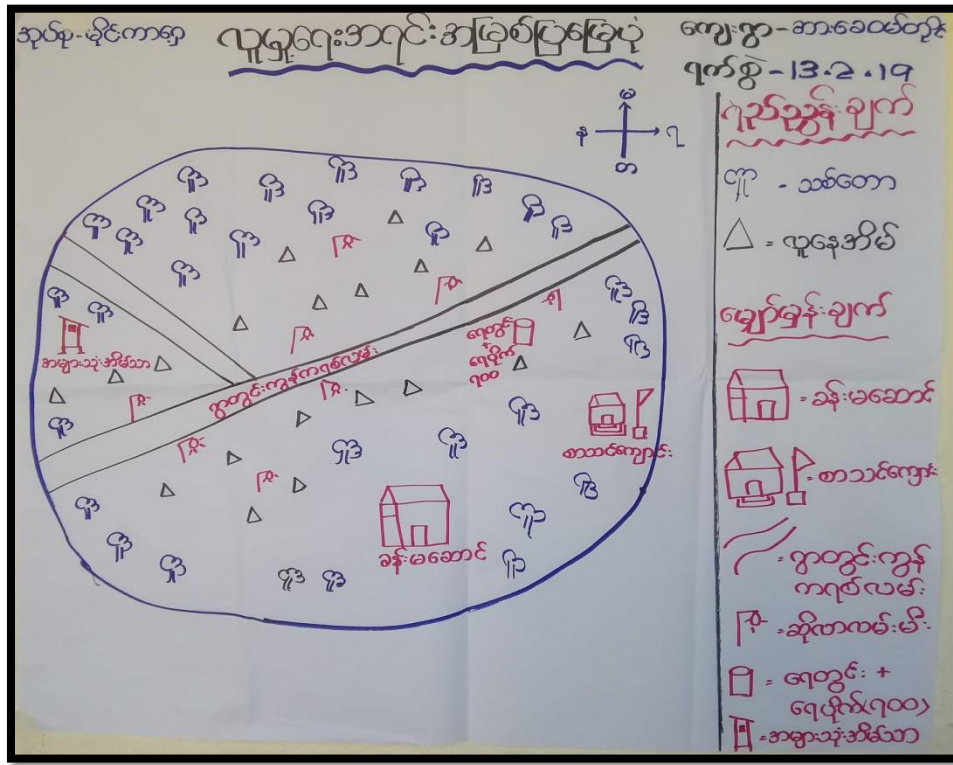 အုပ်စု-မိုင်းကာရှေ
လူမှုရေးအရင်းအမြစ်ပြမြေပုံ
ကျေးရွာ-ဆားခေဝမ်တိုင်
ရက်စွဲ-13.2.19
မ
န
ရ
တ
ရည်ညွှန်းချက်
- သစ်တော
= လူနေအိမ်
မျှော်မှန်းချက်
= ခန်းမဆောင်
= စာသင်ကျောင်း
= ရွာတွင်းကွန်
ကရစ်လမ်း
= ဆိုလာလမ်းမီး
= ရေတွင်း +
ရေပိုက်(၇၀၀)
= အများသုံးအိမ်သာ
အများသုံးအိမ်သာ
ရွာတွင်းကွန်ကရစ်လမ်း
ရေတွင်း
+
ရေပိုက်
၇၀၀
စာသင်ကျောင်း
ခန်းမဆောင်